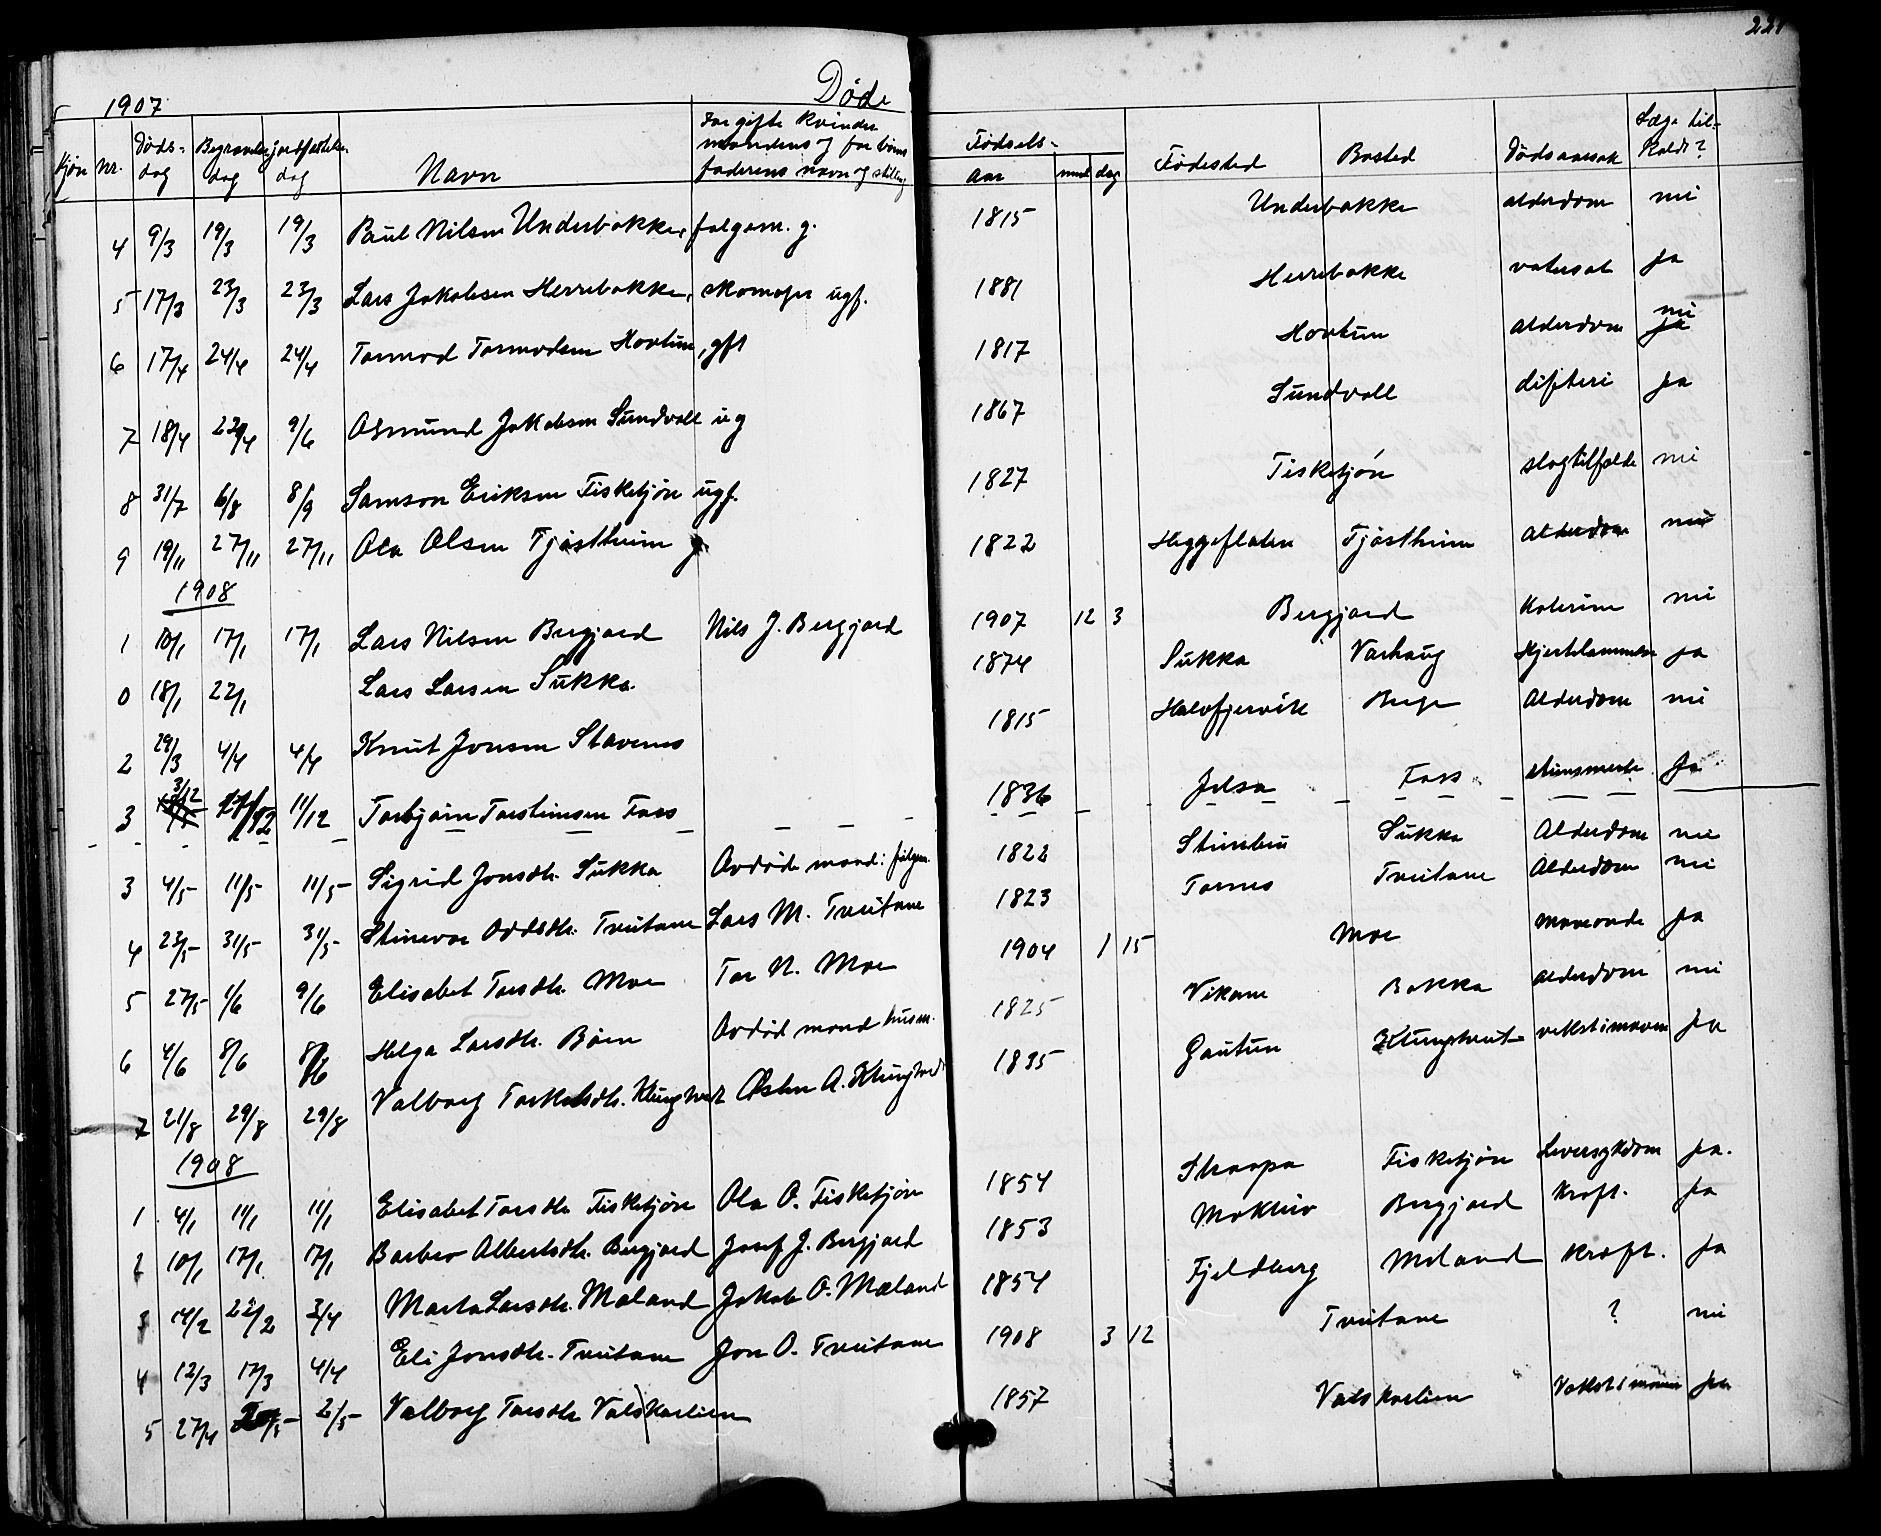 221
1907 Døde
Kjøn Nr. Døds-dag Begravelsesdag Jordfæstelsesdag Navn For gifte kvinder mandens og for børn faderens navn og stilling Fødsels- aar mnd dag Fødested Bosted Dødsaarsak Læge tilkaldt?
4 9/3 19/3 19/3 Paul Nilsen Underbakke, folgem. g. 1815 Underbakke alderdom nei
5 17/3 23/3 23/3 Lars Jakobsen Herrebakke, skomager ugf. 1881 Herrebakke vatersot ja
6 17/4 24/4 24/4 Tormod Tormodsen Hovtun, gft 1817 Hovtun alderdom nei ja
7 18/4 22/4 9/6 Asmund Jakobsen Sundvall ug 1867 Sundvall difteri ja
8 31/7 6/8 8/9 Samson Eriksen Fisketjøn ugf. 1827 Fisketjøn slagtilfælde nei
9 19/11 27/11 27/11 Ola Olsen Tjøstheim g. 1822 Heggeflaten Tjøstheim Alderdom nei
1908
1 10/1 17/1 17/1 Lars Nilsen Bergjord Nils J. Bergjord 1907 12 3 Bergjord Katerine nei
0 18/1 22/1 Lars Larsen Sukka. 1874 Sukka Varhaug Hjertelammelse ja
2 29/3 4/4 4/4 Knut Jonsen Stavenes 1815 Halvfjervik Berge Alderdom nei
3 3/12 11/12 11/12 Torbjørn Torsteinsen Foss 1836 Jelsa Foss ja
3 4/5 11/5 11/5 Sigrid Jonsdtr. Sukka Avdøde mand: 1822 Steinbru Sukka Alderdom nei
4 23/5 31/5 31/5 Stinevor Oddsdtr. Tveitane Lars M. Tveitane 1823 Tornes Tveitane Alderdom nei
5 27/5 1/6 9/6 Elisabet Torsdtr. Moe Tor N. Moe 1904 1 15 Moe Maveonde ja
6 4/6 8/6 8/6 Helga Larsdtr. Bøen Avdød mand husm. 1825 Vikane Bakka alderdom nei
7 21/8 29/8 29/8 Valborg Torkelsdtr. Klungtveit Østen A. Klungtveit 1835 Gautun Klungtveit vekst i maven ja
1908
1 4/1 11/1 11/1 Elisabet Torsdtr Fisketjøn Ola O. Fisketjøn 1854 Skaapa Fisketjøn Leversykdom ja.
2 10/1 17/1 17/1 Barbro Albertsdtr. Bergjord Josef J. Bergjord 1853 Mokleiv Bergjord Kræft. ja
3 14/2 22/2 3/4 Marta Larsdtr. Mæland Jakob O. Mæland 1854 Fjeldberg Mæland Kræft. ja
4 12/3 17/3 4/4 Eli Jonsdtr. Tveitane Jon O. Tveitane 1908 3 12 Tveitane ? nei
5 27/4 2/5 2/5 Valborg Torsdtr Valskarlien 1857 Valskarlien Vækst i maven ja